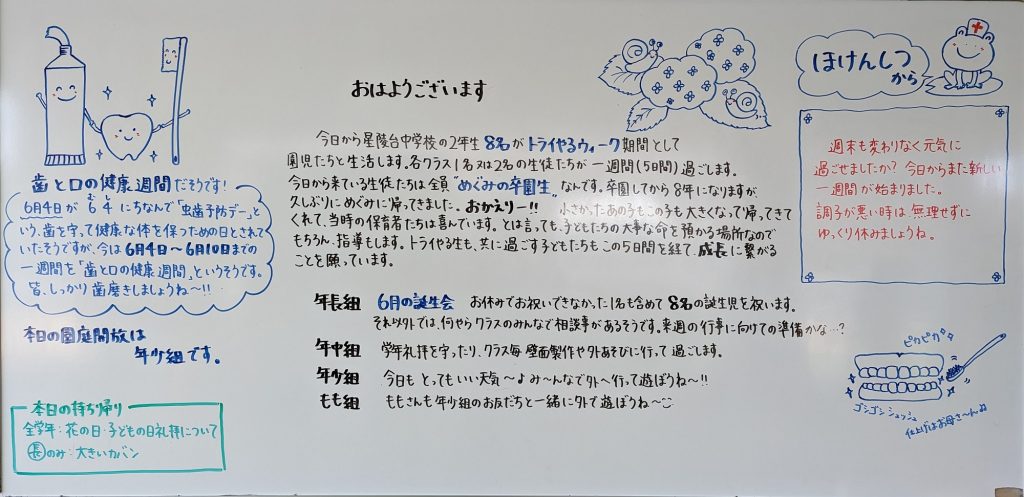 歯と口の健康週間だそうです!
6月4日が 6 4 にちなんで「虫歯予防デー」と
む し
いう、歯を守って健康な体を保つための日とされて
いたそうですが、今は6月4日〜6月10日までの
一週間を「歯と口の健康週間」というそうです。
皆、しっかり歯磨きしましょうね〜!!
本日の園庭開放は
年少組です。
本日の持ち帰り
全学年:花の日・子どもの日礼拝について
長のみ:大きいカバン
おはようございます
今日から星陵台中学校の2年生 8名がトライやるウィーク期間として
園児たちと生活します。各クラス1名又は2名の生徒たちが一週間(5日間)過ごします。
今日から来ている生徒たちは全員"めぐみの卒園生"なんです。卒園してから8年になりますが
久しぶりにめぐみに帰ってきました。おかえりー!! 小さかったあの子もこの子も大きくなって帰ってきて
くれて、当時の保育者たちは喜んでいます。とは言っても、子どもたちの大事な命を預かる場所なので
もちろん、指導もします。トライやる生も、共に過ごす子どもたちもこの5日間を経て、成長に繋がる
ことを願っています。
年長組 6月の誕生会 お休みでお祝いできなかった1名も含めて8名の誕生児を祝います。
それ以外では、何やらクラスのみんなで相談事があるそうです。来週の行事に向けての準備かな…?
年中組 学年礼拝を守ったり、クラス毎 壁面製作や外あそびに行って過ごします。
年少組 今日も とってもいい天気〜よ み〜んなで外へ行って遊ぼうね〜!!
もも組 ももさんも年少組のお友だちと一緒に外で遊ぼうね〜
ほけんしつ
から
週末も変わりなく元気に
過ごせましたか?今日からまた新しい
一週間が始まりました。
調子が悪い時は無理せずに
ゆっくり休みましょうね。
ピカピカ
ゴシゴシ シュッシュ
仕上げはお母さ〜ん♪